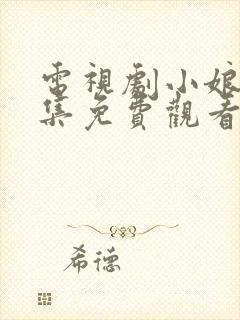 電視劇小娘
集免費觀看
希德